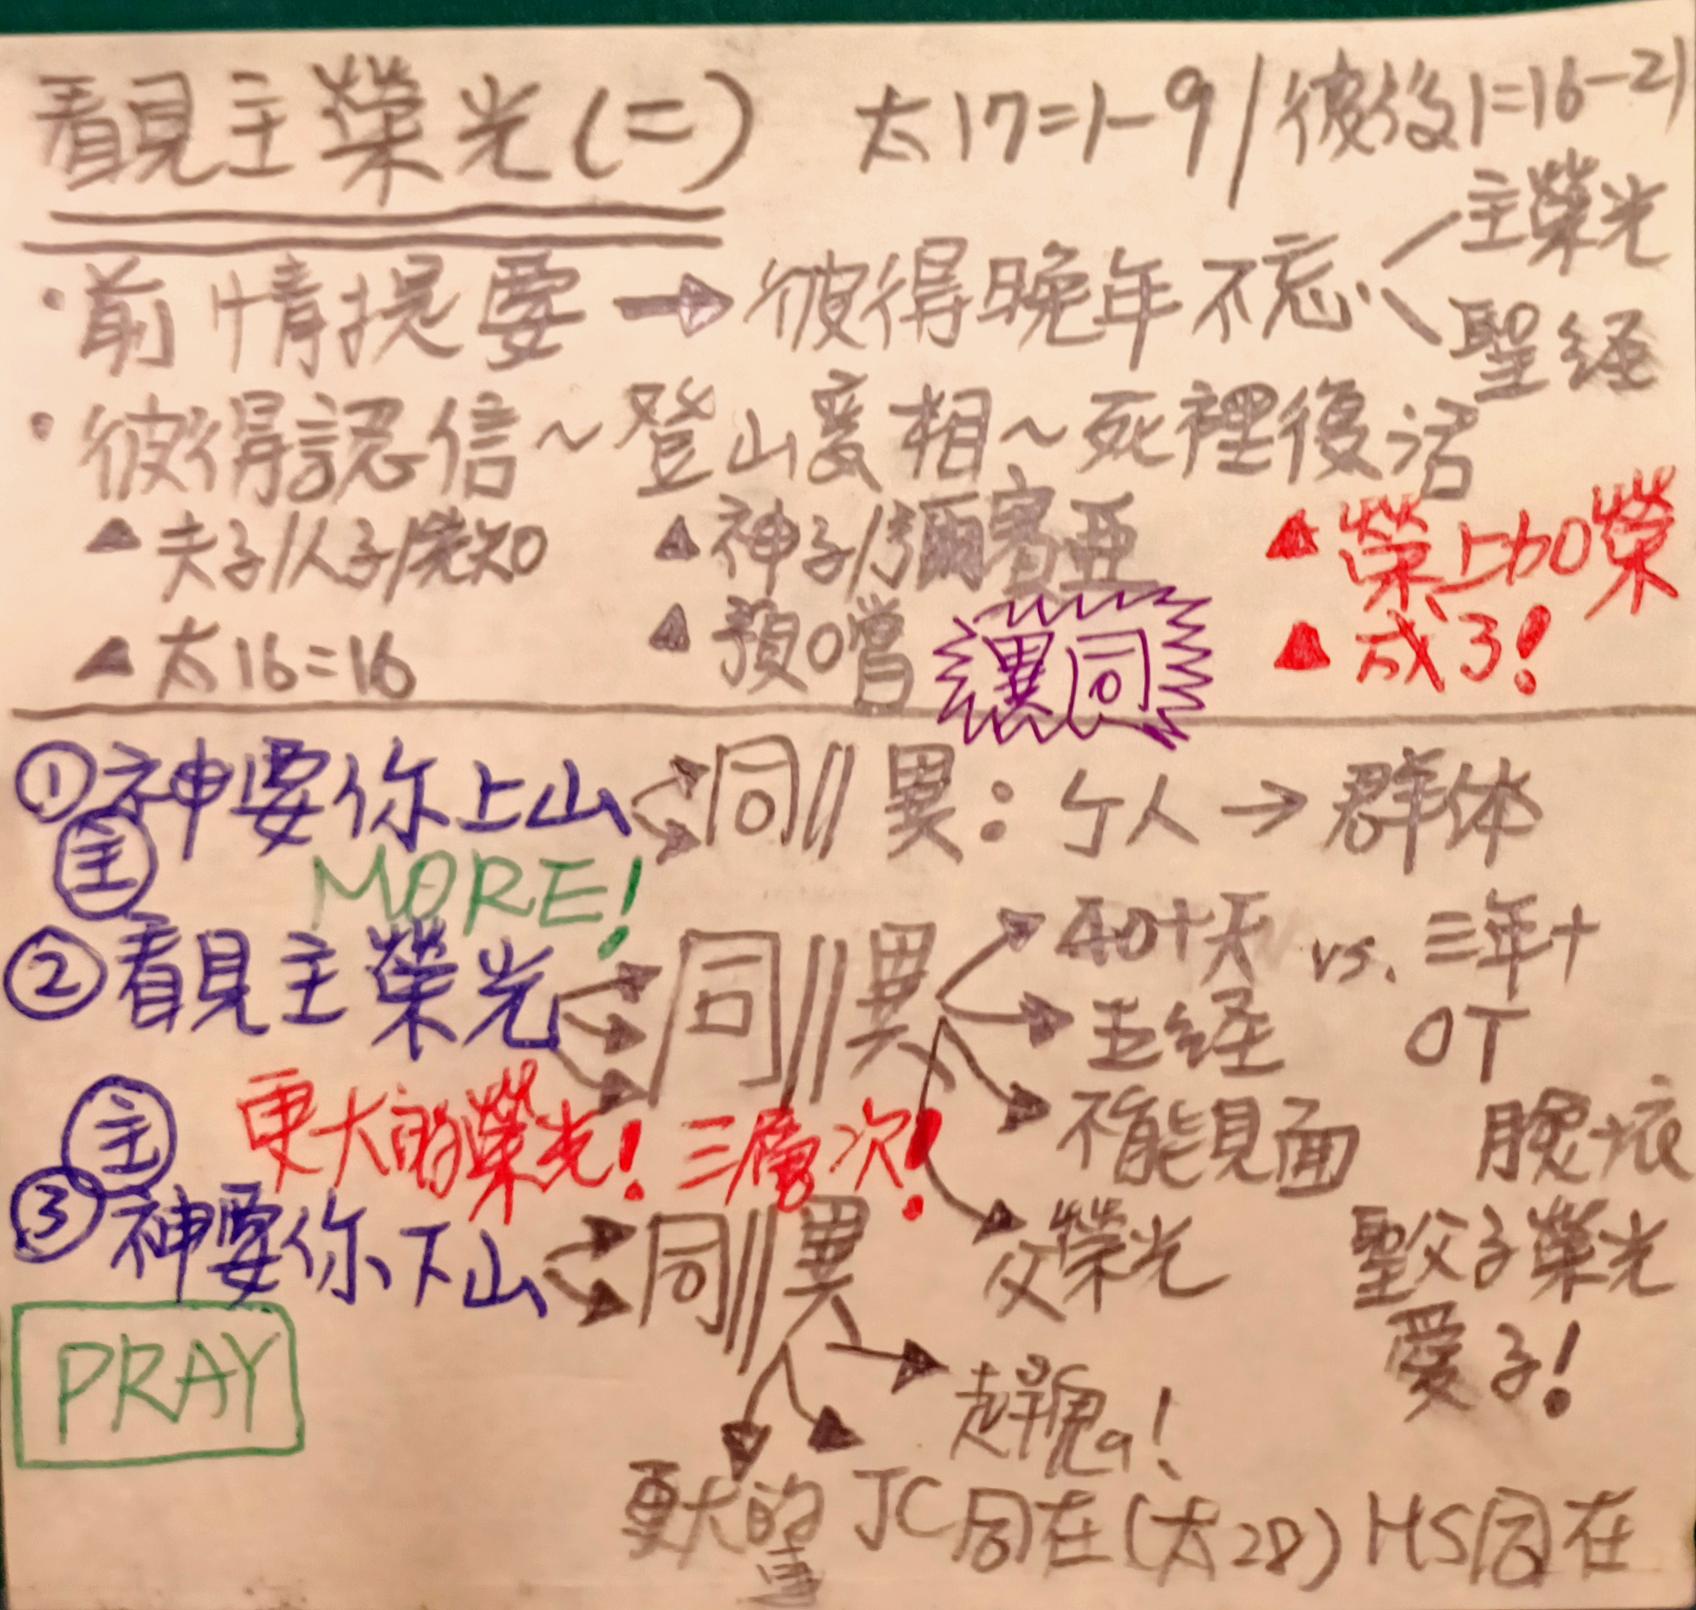 看見主榮光(二) 太17=1-9/彼後1=16-21
·前情提要→彼得晚年不忘 主榮光
聖経
·彼得認信~登山变相~死裡復活
▲夫子/人子/先知 ▲神子/彌賽亞 ▲榮上加榮
▲太16=16 ▲預嚐 異同 ▲成了!
①神要你上山 同//異:个人→群体
主 MORE!
②看見主榮光 同//異 40+天 vs. 三年+
五経 OT
主 更大的榮光!三層次! 不能見面
③神要你下山 同//異 父榮光 聖父子榮光
愛子!
PRAY
更大的 JC同在(太28) HS同在